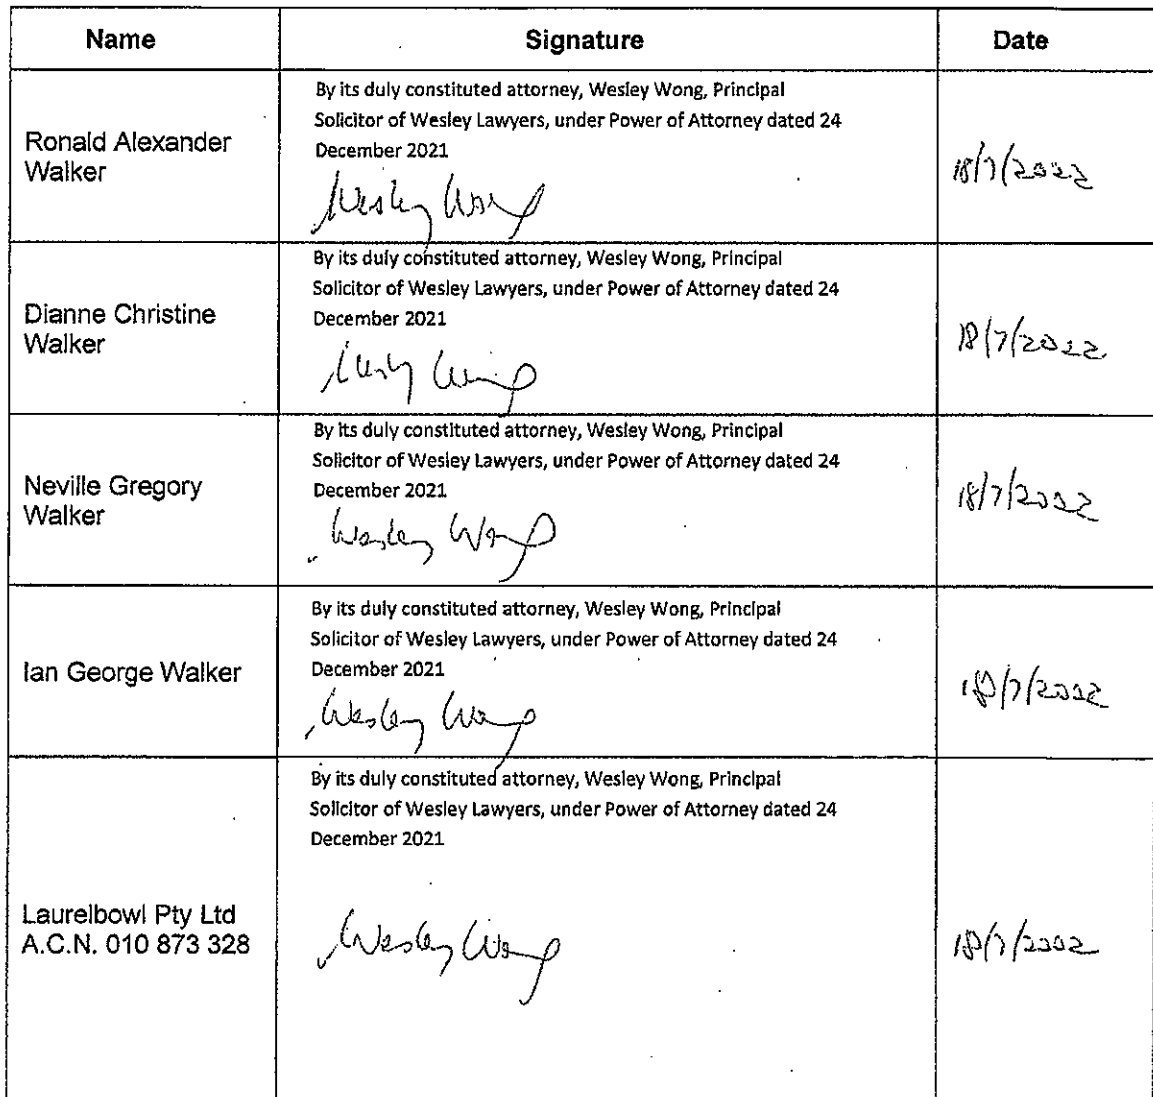 Name
Signature
Date
Ronald Alexander
Walker
By its duly constituted attorney, Wesley Wong, Principal
Solicitor of Wesley Lawyers, under Power of Attorney dated 24
December 2021
Wesley Wong
18/7/2022
Dianne Christine
Walker
By its duly constituted attorney, Wesley Wong, Principal
Solicitor of Wesley Lawyers, under Power of Attorney dated 24
December 2021
Wesley Wong
18/7/2022
Neville Gregory
Walker
By its duly constituted attorney, Wesley Wong, Principal
Solicitor of Wesley Lawyers, under Power of Attorney dated 24
December 2021
Wesley Wong
18/7/2022
Ian George Walker
By its duly constituted attorney, Wesley Wong, Principal
Solicitor of Wesley Lawyers, under Power of Attorney dated 24
December 2021
Wesley Wong
18/7/2022
Laurelbowl Pty Ltd
A.C.N. 010 873 328
By its duly constituted attorney, Wesley Wong, Principal
Solicitor of Wesley Lawyers, under Power of Attorney dated 24
December 2021
Wesley Wong
18/7/2022